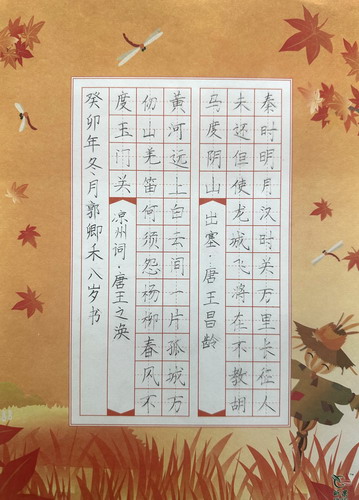 秦时明月汉时关万里长征人
未还但使龙城飞将在不教胡
马度阴山 出塞·唐王昌龄
黄河远上白云间一片孤城万
仞山羌笛何须怨杨柳春风不
度玉门关 凉州词·唐王之涣
癸卯年冬月郭卿禾八岁书